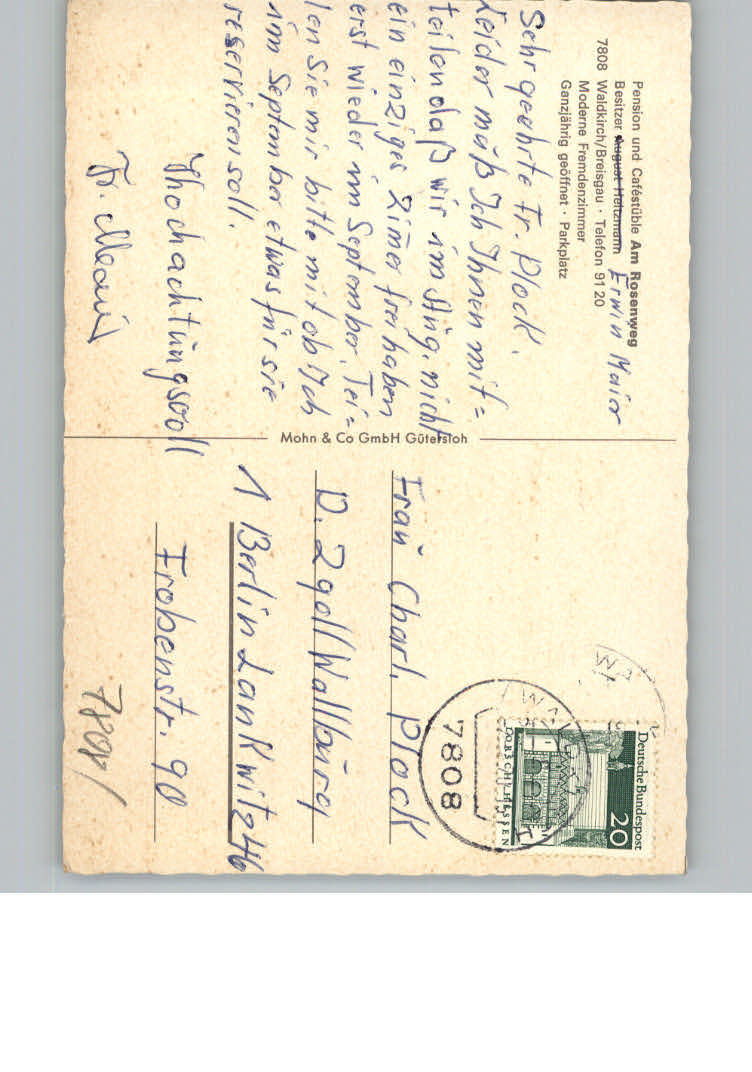 Pension und Caféstüble Am Rosenweg
Besitzer August Heitzmann Erwin Maier
7808 Waldkirch/Breisgau · Telefon 91 20
Moderne Fremdenzimmer
Ganzjährig geöffnet · Parkplatz
Sehr geehrte Fr. Plock.
Leider muß Ich Ihnen mit=
teilen daß wir im Aug. nicht
ein einziges Zimer frei haben
erst wieder im September. Tei=
len Sie mir bitte mit ob Ich
im September etwas für sie
reservieren soll.
Hochachtungsvoll
Fr. Maier
Mohn & Co GmbH Gütersloh
Deutsche Bundespost
20
LORSCH/HESSEN
7808
Frau Charl. Plock
1 Berlin Lankwitz 46
Frobenstr. 90
7808/